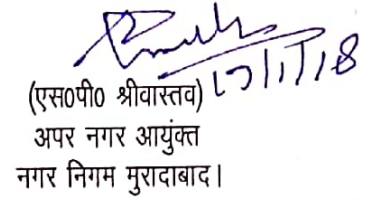 (एस0पी0 श्रीवास्तव)
अपर नगर आयुंक्त
नगर निगम मुरादाबाद।